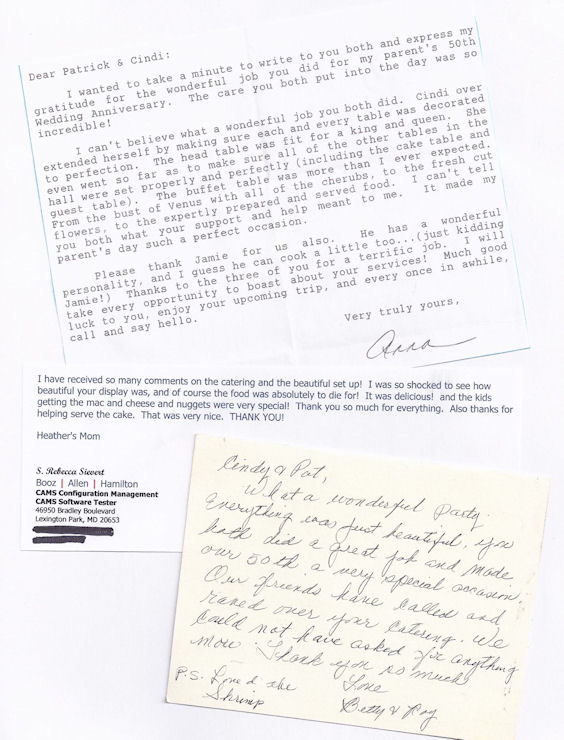 Dear Patrick & Cindi:
I wanted to take a minute to write to you both and express my
gratitude for the wonderful job you did for my parent's 50th
Wedding Anniversary. The care you both put into the day was so
incredible!
I can't believe what a wonderful job you both did. Cindi over
extended herself by making sure each and every table was decorated
to perfection. The head table was fit for a king and queen. She
even went so far as to make sure all of the other tables in the
hall were set properly and perfectly (including the cake table and
guest table). The buffet table was more than I ever expected.
From the bust of Venus with all of the cherubs, to the fresh cut
flowers, to the expertly prepared and served food. I can't tell
you both what your support and help meant to me. It made my
parent's day such a perfect occasion.
Please thank Jamie for us also. He has a wonderful
personality, and I guess he can cook a little too...(just kidding
Jamie!) Thanks to the three of you for a terrific job. I will
take every opportunity to boast about your services! Much good
luck to you, enjoy your upcoming trip, and every once in awhile,
call and say hello.
Very truly yours,
Anna
I have received so many comments on the catering and the beautiful set up! I was so shocked to see how
beautiful your display was, and of course the food was absolutely to die for! It was delicious! and the kids
getting the mac and cheese and nuggets were very special! Thank you so much for everything. Also thanks for
helping serve the cake. That was very nice. THANK YOU!
Heather's Mom
S. Rebecca Sievert
Booz | Allen | Hamilton
CAMS Configuration Management
CAMS Software Tester
46950 Bradley Boulevard
Lexington Park, MD 20653
Cindy & Pat,
What a wonderful party.
Everything was just beautiful, you
both did a great job and made
our 50th a very special occasion.
Our friends have called and
raved over your catering. We
could not have asked for anything
more. Thank you so much
Love
Betty & Roy
P.S. Loved the
Shrimp